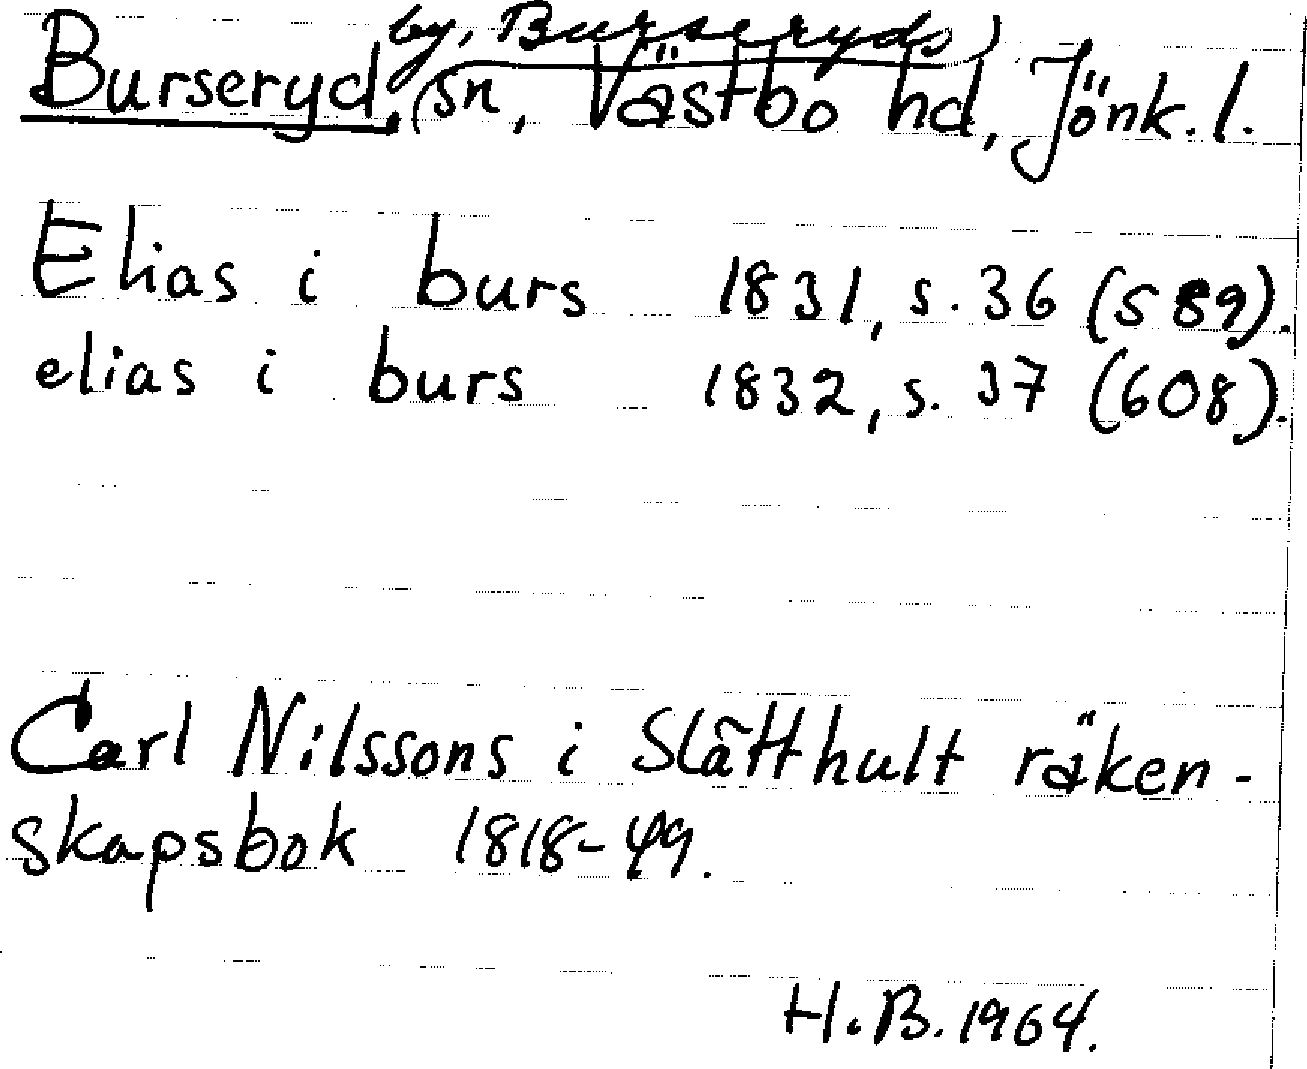 by, Burseryds
Burseryd, (sn, Västbo hd, Jönk. l.
Elias i burs 1831, s. 36 (589).
elias i burs 1832, s. 37 (608).
Carl Nilssons i Slätthult räken-
skapsbok 1818-49.
H.B. 1964.